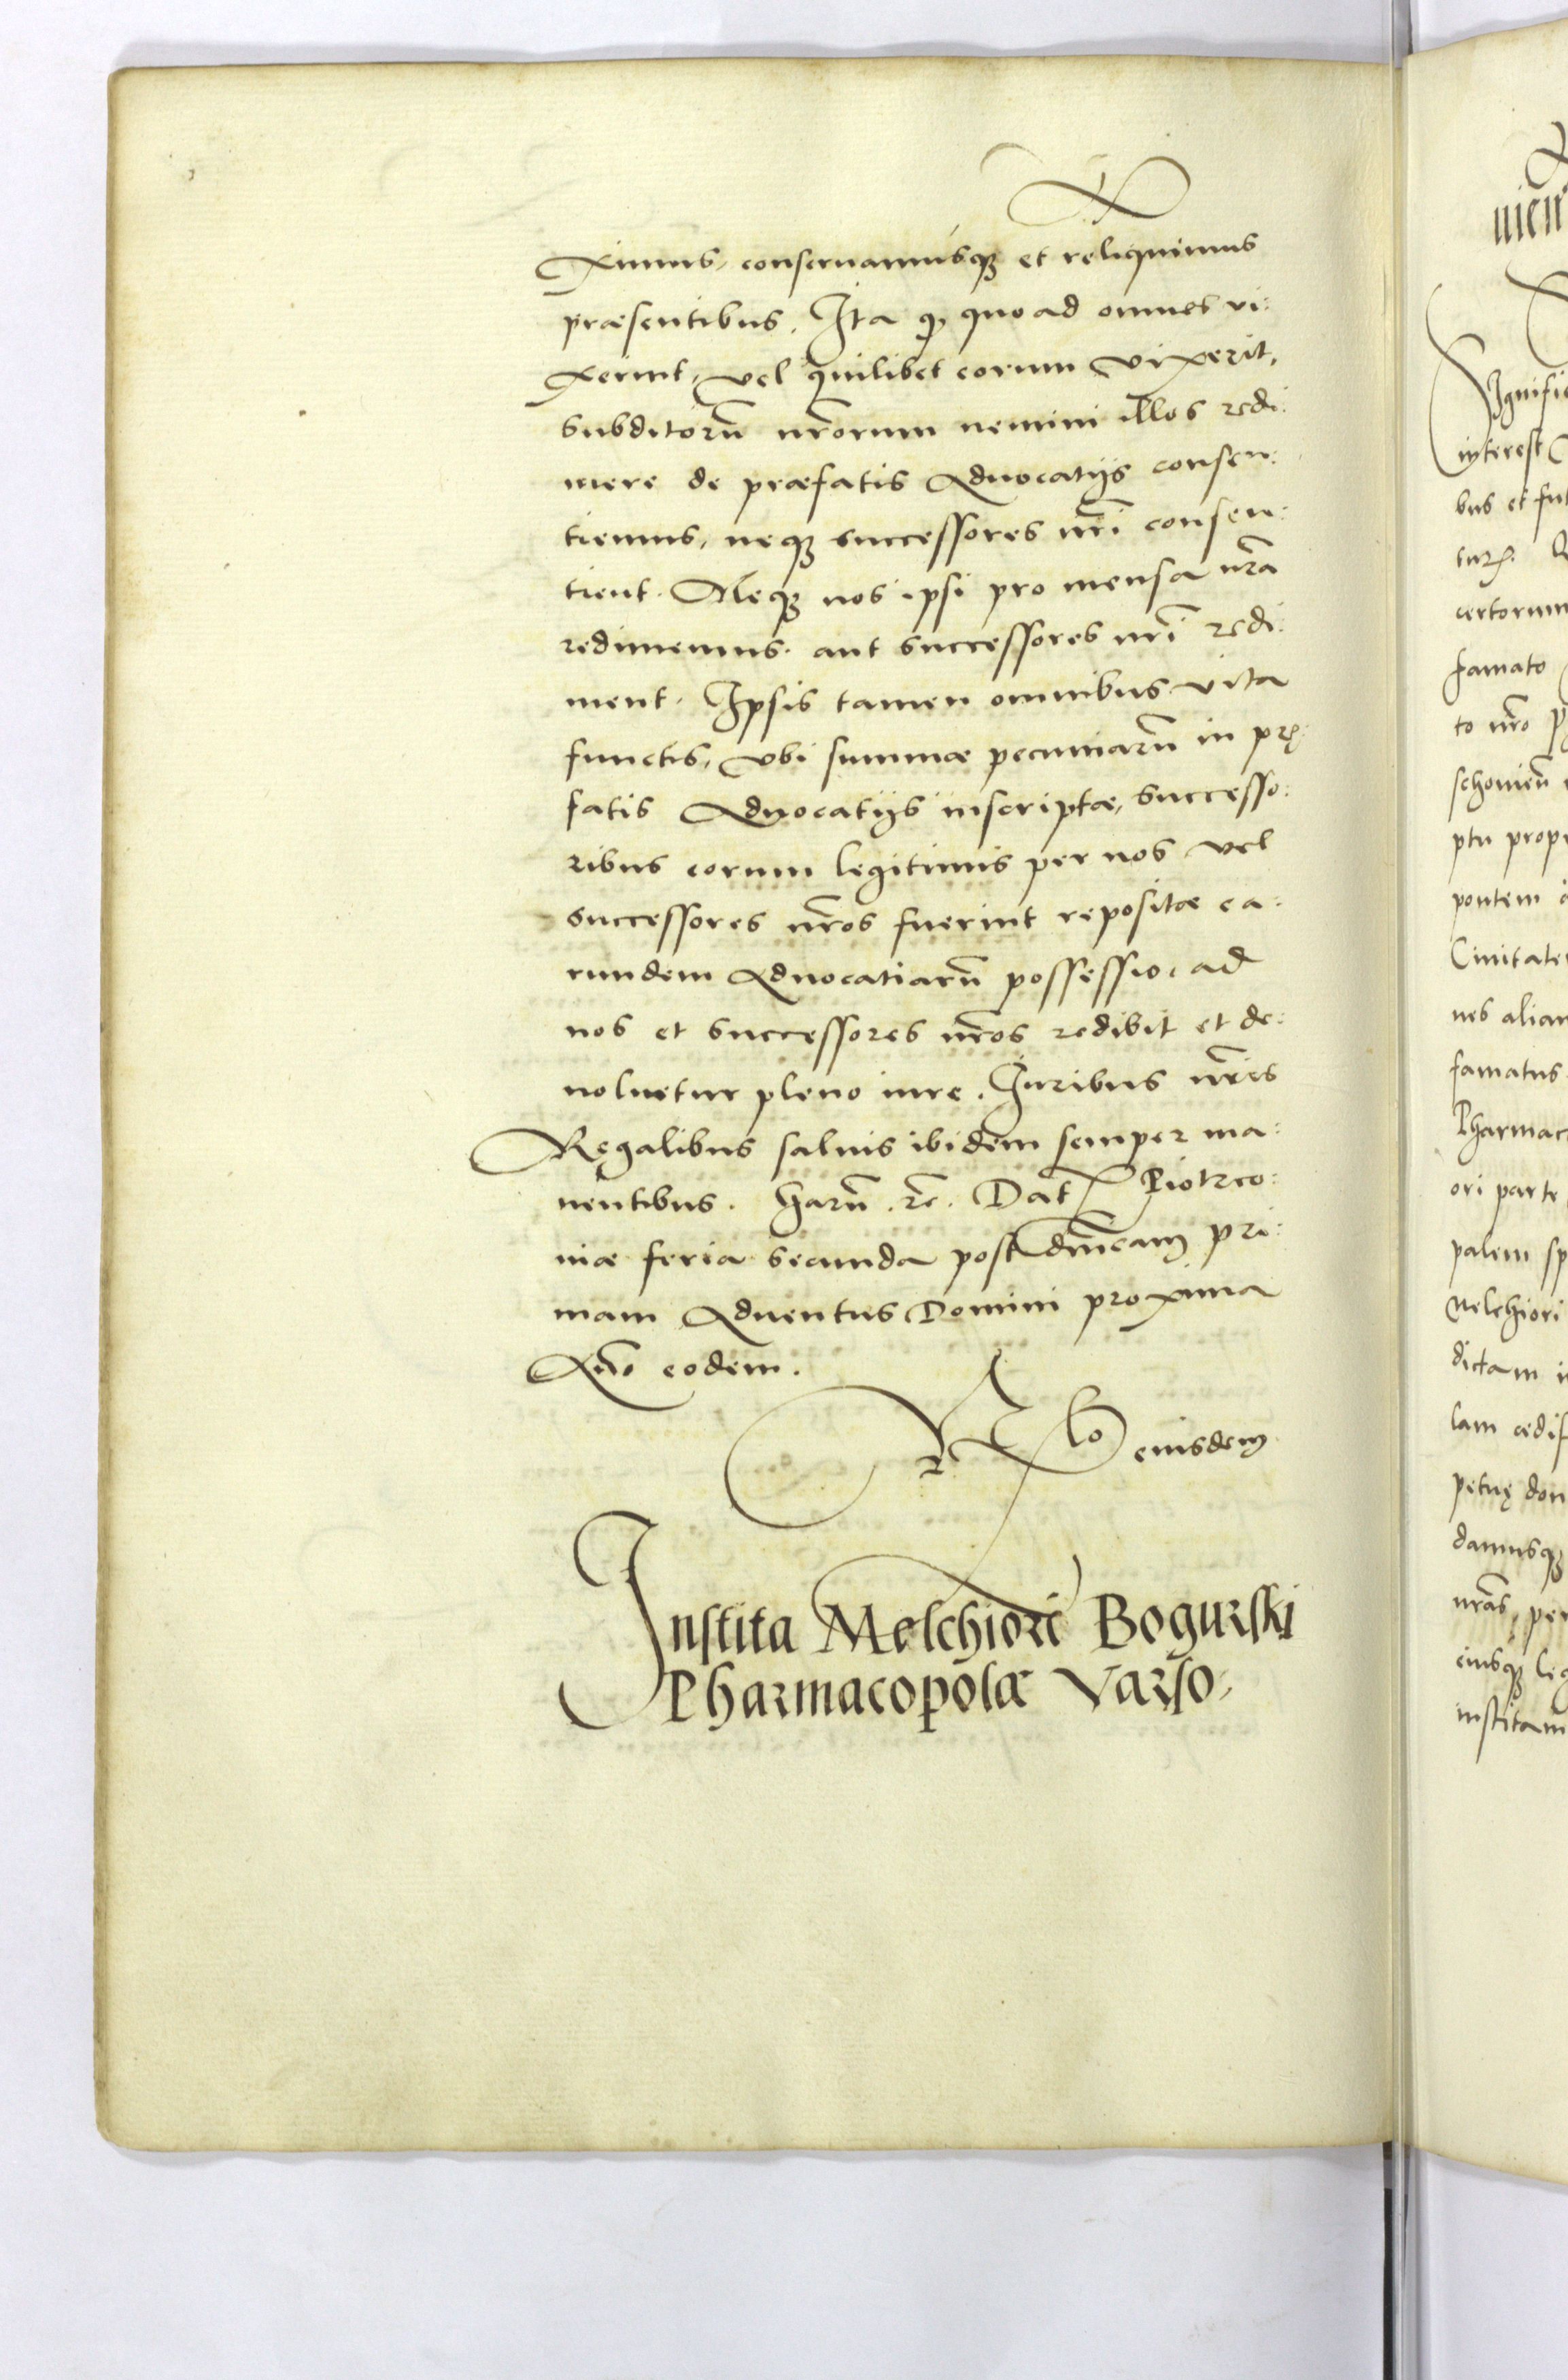 ximus, conseruamusq₃ et reliquimus
præsentibus. Ita q̃ quoad omnes vi:
xerint, vel quilibet eorum vixerit,
subditorũ nr̃orum nemini illos redi:
mere de præfatis Aduocatijs consen:
tiemus, neq₃ successores nr̃i consen:
tient. Neq₃ nos ipsi pro mensa nr̃a
redimemus. aut successores nr̃i redi:
ment. Ipsis tamen omnibus vita
functis, vbi summæ pecuniarũ in prę:
fatis Aduocatijs inscriptæ, successo:
ribus eorum legitimis per nos vel
successores nr̃os fuerint repositæ ea:
rundem Aduocatiarũ possessio, ad
nos et successores nr̃os redibit et de:
uoluetur pleno iure. Iuribus nr̃is
Regalibus saluis ibidem semper ma:
nentibus. Harũ. rc̃. Dat Piotrco:
uiæ feria secunda post dñicam pri:
mam Aduentus Domini proxima
Año eodem.
Rlõ eiusdem
Instita Melchiori Bogurski
Pharmacopolæ Varso:
nien
Signific
interest
bus et fut
certorum
famato
to nr̃o
schouieñ
ptu prop
pontem
Ciuitate
nes alia
famatus
Pharmac
ori parte
palem sp
Melchiori
dictam i
lam ædif
petuę don
damusq₃
nr̃as, per
eiusq₃ leg
institam